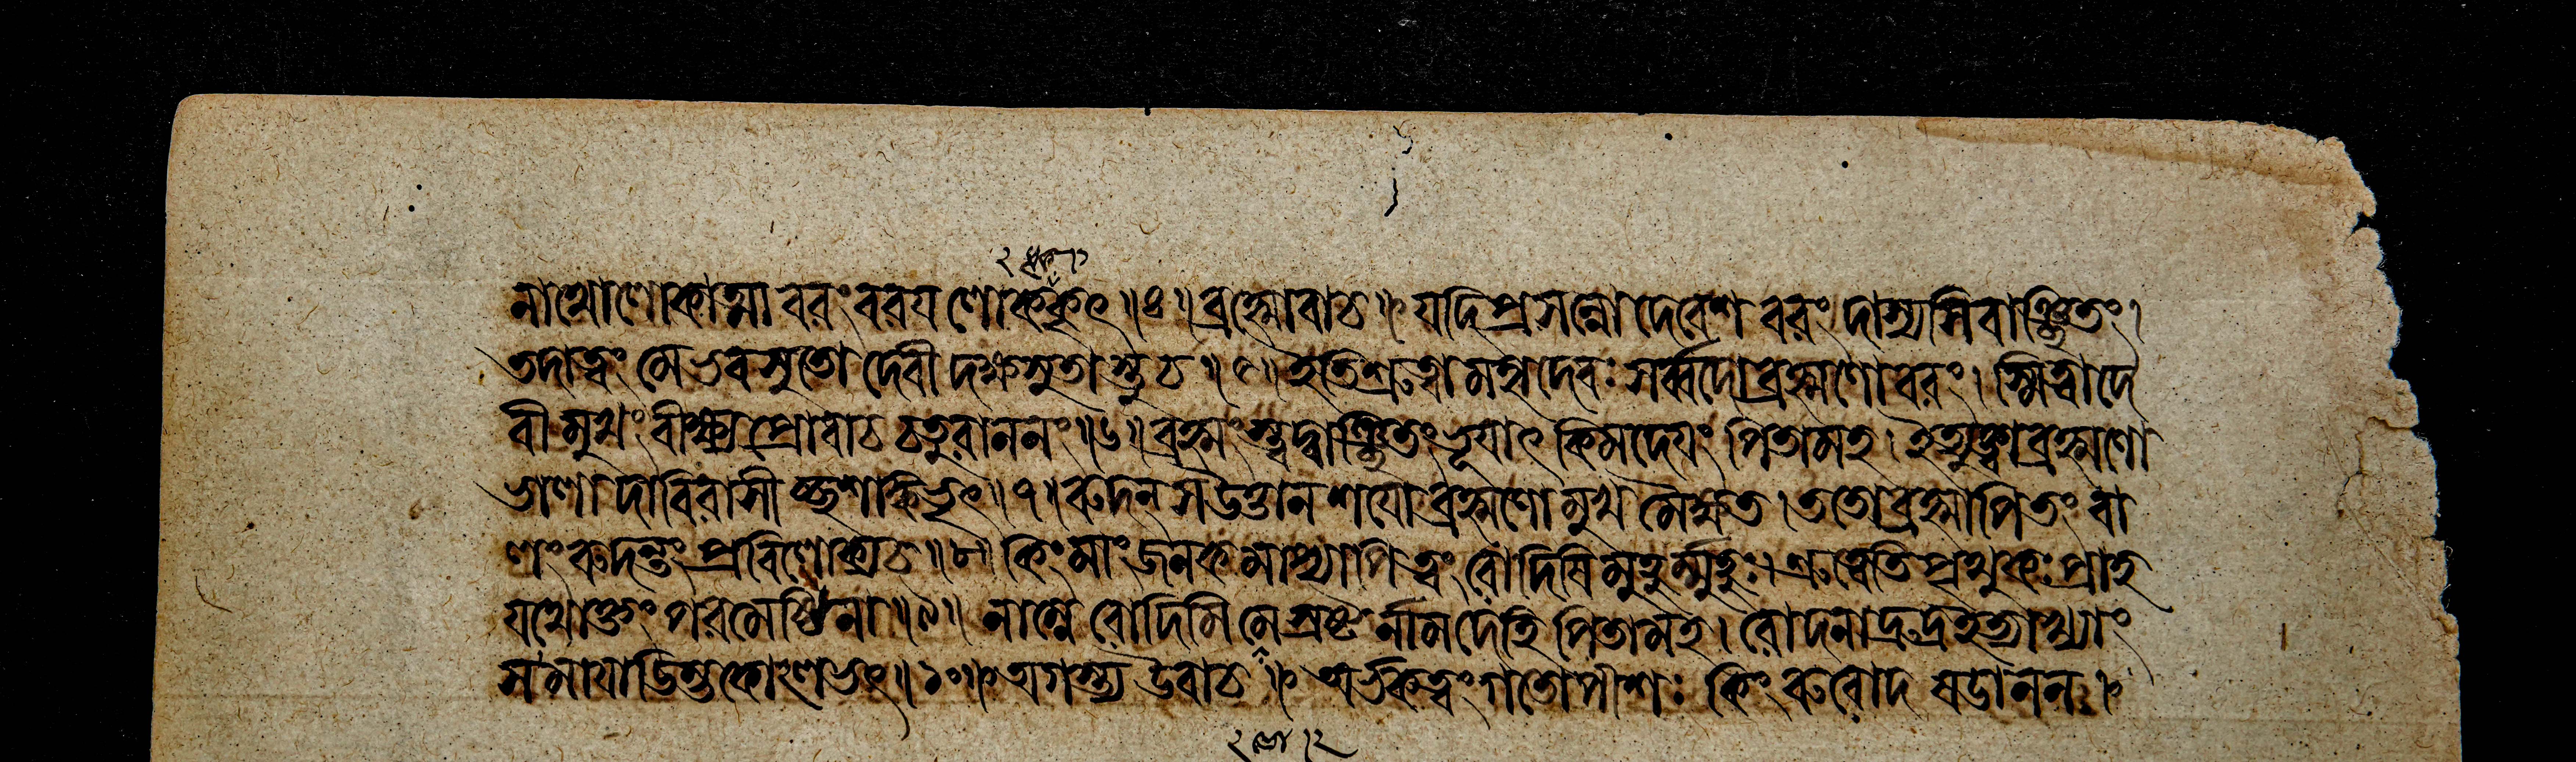 নাথো লোকাত্মা বরং বরয লোককৃৎ॥৪॥ব্রহ্মোবাচ॥যদিপ্রসন্নোদেবেশ বরং দাস্যসিবাঞ্ছিতং।
তদাত্বং মেভবসুতো দেবী দক্ষসুতাস্তুচ॥৫॥ইতিশ্রুত্বামহাদেবঃ সর্ব্বদোব্রহ্মণোবরং।স্মিত্বাদে
বীমুখং বীক্ষ্য প্রোবাচ চতুরাননং॥৬॥ব্রহ্মংস্ত্বদ্বাঞ্ছিতংভূযাৎ কিমদেযং পিতামহ।ইত্যুক্ত্বাব্রহ্মণো
ভালাদাবিরাসীচ্ছশাঙ্কভৃৎ॥৭॥রুদন্সউত্তানশযো ব্রহ্মণোমুখমৈক্ষত।ততোব্রহ্মাপিতং বা
লং রুদন্তং প্রবিলোক্যচ॥৮॥কিং মাং জনকমাপ্যাপিত্বং রোদিষি মুহুর্ম্মুহুঃ।শ্রুত্বেতিপৃথুকঃ প্রাহ
যথোক্তং পরমেষ্ঠিনা॥৯॥নাম্নে রোদিমি মেস্রষ্টর্নামদেহি পিতামহ।রোদনাদ্রুদ্রইত্যাখ্যাং
সমাযাডিম্ভকোঽলভৎ॥১০॥অগস্ত্য উবাচ॥অর্ভকত্বংগতোপীশঃ কিং রুরোদ ষডানন।